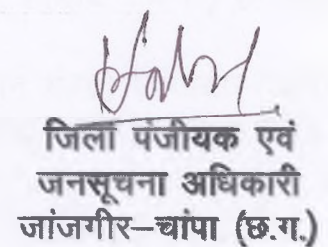 जिला पंजीयक एवं
जनसूचना अधिकारी
जांजगीर–चांपा (छ.ग.)